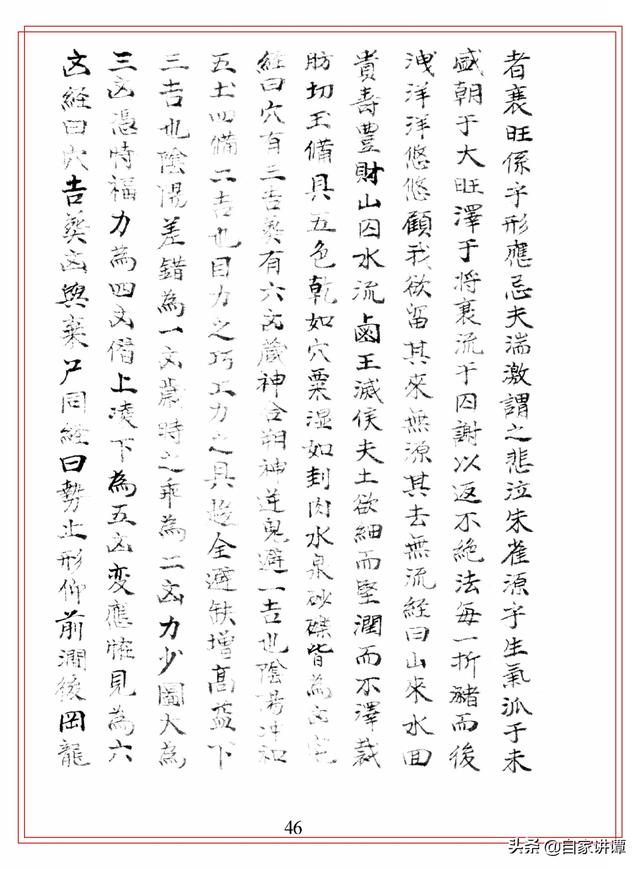 者衰旺係乎形應忌夫湍激謂之悲泣朱雀源乎生氣派于未
盛朝于大旺澤于將衰流于囚謝以返不絶法每一折瀦而後
洩洋洋悠悠顧我欲留其來無源其去無流經曰山來水回
貴壽豐財山囚水流鹵王滅侯夫土欲細而堅潤而不澤裁
肪切玉備具五色乾如穴粟湿如刲肉水泉砂礫皆為凶宅
經曰穴有三吉葬有六凶藏神合朔神迎鬼避一吉也陰陽冲和
五土四備二吉也目力之巧工力之具趋全避缺增髙益下
三吉也陰陽差錯為一凶歲時之乖為二凶力少圖大為
三凶憑恃福力為四凶僭上凌下為五凶变應怪見為六
凶経曰穴吉葬凶與棄尸同経曰勢止形仰前澗後岡龍
46
头条 @自家讲谭